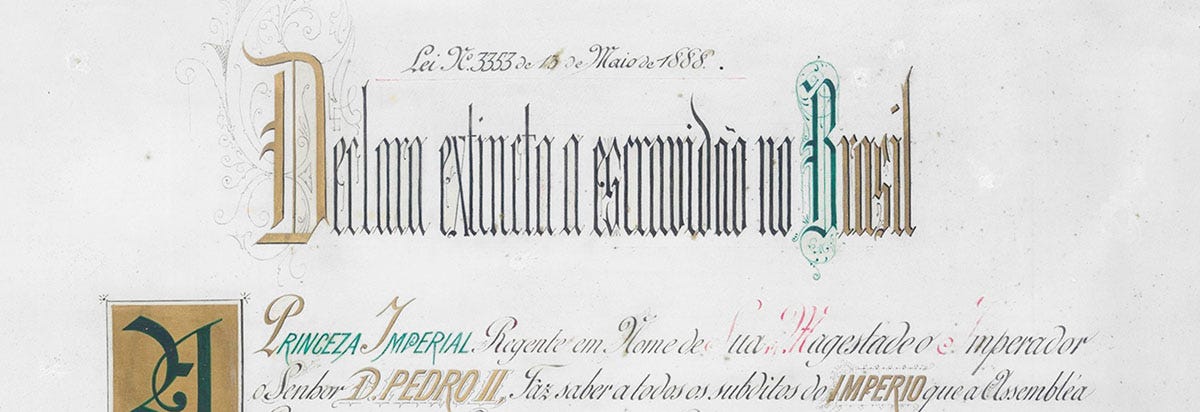 Lei Nº 3353 de 13 de Maio de 1888.
Declara extincta a escravidão no Brasil
A PRINCEZA IMPERIAL Regente em Nome de Sua Magestade o Imperador
o Senhor D. PEDRO II, Faz saber a todos os subditos do IMPERIO que a Assembléa